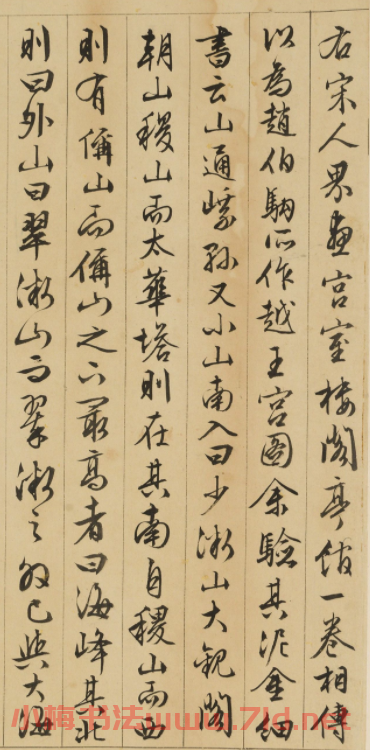 右宋人界畫宮室樓閣亭館一卷相傳
以為趙伯駒所作越王宮圖余驗其泥金細
書云山通又小山南入曰少微山大觀閣
朝山稷山而太華塔則在其南自稷山而西
則有偁山而偁山之下最高者曰海峰其北
則曰外山曰翠微山而翠微之已與大海
小梅书法www.7ld.net